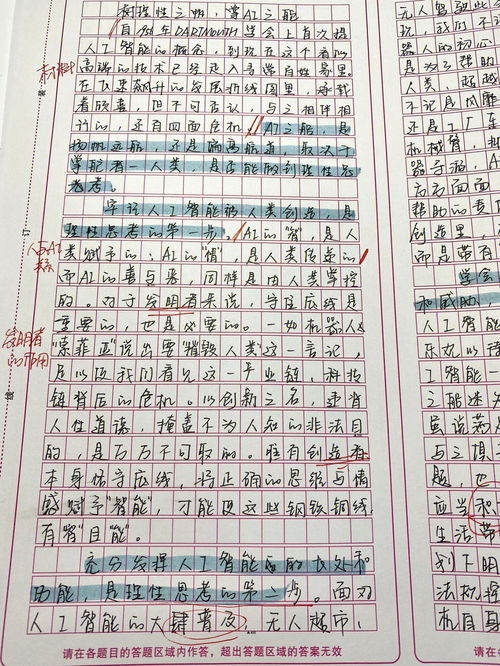 有理性之帆，管AI之船
自从在DARTMOUTH学会上首次提
人工智能的概念，到现在这个看似
高端的技术已经走入寻常百姓家里。
在飞速飙升的发展折线图里，承载
着欣喜，但不可否认，与之相伴相
行的，还有四面危机。AI之船，是
扬帆远航，还是偏离航道，取决于
掌舵者—人类，是否能做到理性思
考。
人工智能被人类创造，是
理性思考的第一步。AI的"智"，是人
类赋予的；AI的"情"，是人类传递的
而AI的喜与忧，同样是由人类掌控
的。对于发明者来说，守住底线是
重要的，也是必要的。一如机器人
"索菲亚"说出要"摧毁人类"这一言论，
足以使我们看见这一产业链，科技
链背后的危机。以创新之名，违背
人性道德，掩盖不为人知的非法目
的，是万万不可取的。唯有创造者
本身保守底线，将正确的思维与情
感赋予"智能"，才能使这些钢铁铜线
有"智"且"能"。
充分发挥人工智能的长处和
功能，是理性思考的第二步。面对
人工智能的大肆普及，无人超市，
人与AI
关系
发明者
的作用
无人驾驶
现，我们不
器人的初心
是为了帮助
人类，超越
不论是
还是工厂车
机械臂，
方方面面
帮助的
创造里，
而是带有
学会
和威胁
人工智能
乐观
人工智能一
之船
虽说
与之
题，也
应当和
生活带
划下明
法
机自身
装
订
线
请在各题目的答题区域内作答，超出答题区域的答案无效